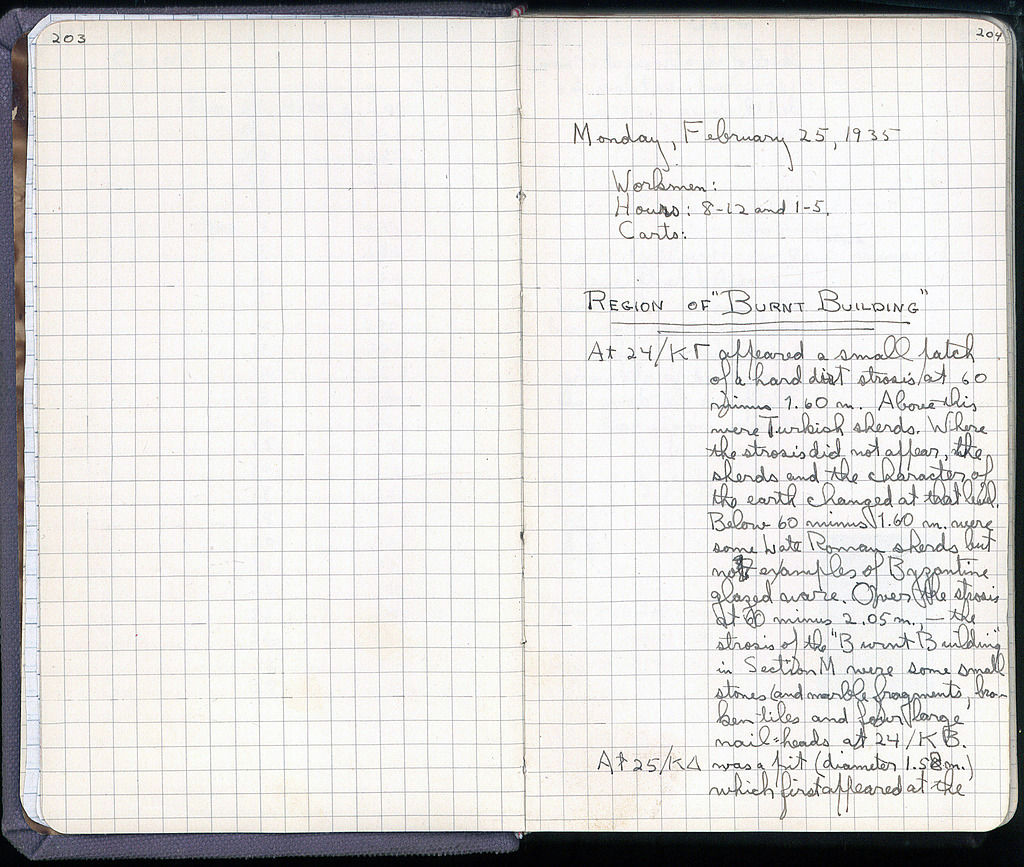 203
204
Monday, February 25, 1935
Workmen:
Hours: 8-12 and 1-5.
Carts:
REGION OF "BURNT BUILDING"
At 24/ΚΓ appeared a small patch
of a hard dirt strosis at 60
minus 1.60 m. Above this
were Turkish sherds. Where
the strosis did not appear, the
sherds and the character of
the earth changed at that level.
Below 60 minus 1.60 m. were
some Late Roman sherds but
no examples of Byzantine
glazed ware. Over the strosis
at 60 minus 2.05 m., — the
strosis of the "Burnt Building"
in Section M were some small
stones and marble fragments, bro-
ken tiles and four large
nail-heads at 24/ΚΒ.
At 25/ΚΔ was a pit (diameter 1.58 m.)
which first appeared at the